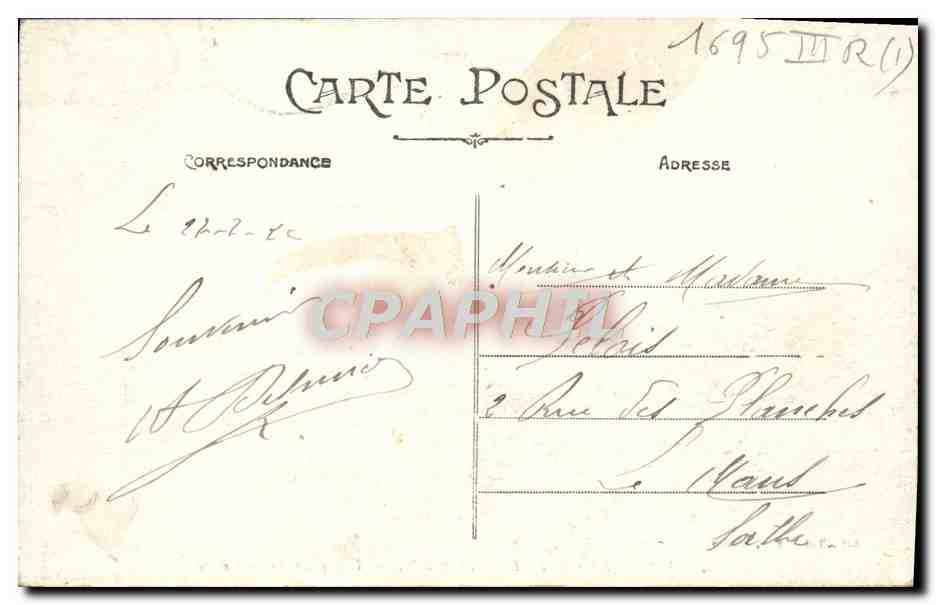 1695 III R (1)
CARTE POSTALE
CORRESPONDANCE
ADRESSE
Le
Souvenir
CPAPHIL
Monsieur et Madame
2 Rue des Planches
Le Mans
Sarthe